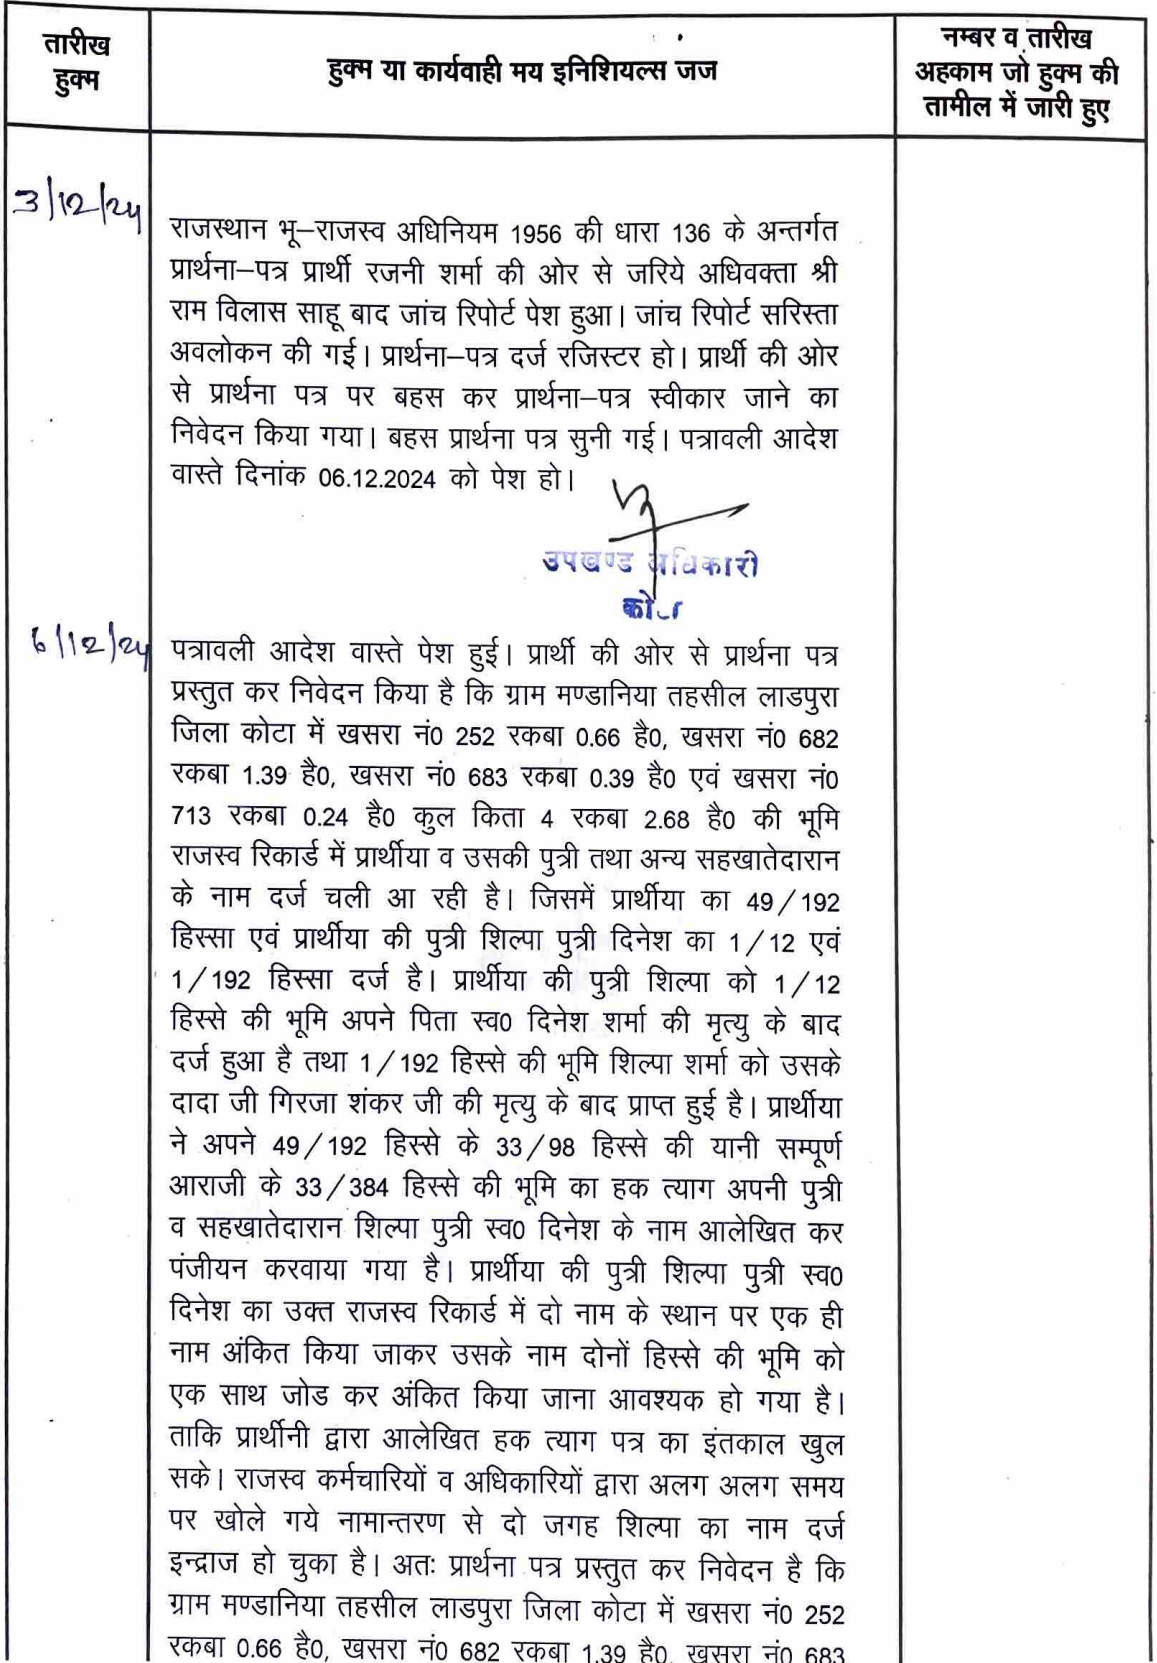 तारीख
हुक्म
हुक्म या कार्यवाही मय इनिशियल्स जज
नम्बर व तारीख
अहकाम जो हुक्म की
तामील में जारी हुए
3/12/24
राजस्थान भू–राजस्व अधिनियम 1956 की धारा 136 के अन्तर्गत
प्रार्थना–पत्र प्रार्थी रजनी शर्मा की ओर से जरिये अधिवक्ता श्री
राम विलास साहू बाद जांच रिपोर्ट पेश हुआ। जांच रिपोर्ट सरिस्ता
अवलोकन की गई। प्रार्थना–पत्र दर्ज रजिस्टर हो। प्रार्थी की ओर
से प्रार्थना पत्र पर बहस कर प्रार्थना–पत्र स्वीकार जाने का
निवेदन किया गया। बहस प्रार्थना पत्र सुनी गई। पत्रावली आदेश
वास्ते दिनांक 06.12.2024 को पेश हो।
उपखण्ड अधिकारी
6/12/24
पत्रावली आदेश वास्ते पेश हुई। प्रार्थी की ओर से प्रार्थना पत्र
प्रस्तुत कर निवेदन किया है कि ग्राम मण्डानिया तहसील लाडपुरा
जिला कोटा में खसरा नं0 252 रकबा 0.66 है0, खसरा नं0 682
रकबा 1.39 है0, खसरा नं0 683 रकबा 0.39 है0 एवं खसरा नं0
713 रकबा 0.24 है0 कुल किता 4 रकबा 2.68 है0 की भूमि
राजस्व रिकार्ड में प्रार्थीया व उसकी पुत्री तथा अन्य सहखातेदारान
के नाम दर्ज चली आ रही है। जिसमें प्रार्थीया का 49/192
हिस्सा एवं प्रार्थीया की पुत्री शिल्पा पुत्री दिनेश का 1/12 एवं
1/192 हिस्सा दर्ज है। प्रार्थीया की पुत्री शिल्पा को 1/12
हिस्से की भूमि अपने पिता स्व0 दिनेश शर्मा की मृत्यु के बाद
दर्ज हुआ है तथा 1/192 हिस्से की भूमि शिल्पा शर्मा को उसके
दादा जी गिरजा शंकर जी की मृत्यु के बाद प्राप्त हुई है। प्रार्थीया
ने अपने 49/192 हिस्से के 33/98 हिस्से की यानी सम्पूर्ण
आराजी के 33/384 हिस्से की भूमि का हक त्याग अपनी पुत्री
व सहखातेदारान शिल्पा पुत्री स्व0 दिनेश के नाम आलेखित कर
पंजीयन करवाया गया है। प्रार्थीया की पुत्री शिल्पा पुत्री स्व0
दिनेश का उक्त राजस्व रिकार्ड में दो नाम के स्थान पर एक ही
नाम अंकित किया जाकर उसके नाम दोनों हिस्से की भूमि को
एक साथ जोड कर अंकित किया जाना आवश्यक हो गया है।
ताकि प्रार्थीनी द्वारा आलेखित हक त्याग पत्र का इंतकाल खुल
सके। राजस्व कर्मचारियों व अधिकारियों द्वारा अलग अलग समय
पर खोले गये नामान्तरण से दो जगह शिल्पा का नाम दर्ज
इन्द्राज हो चुका है। अतः प्रार्थना पत्र प्रस्तुत कर निवेदन है कि
ग्राम मण्डानिया तहसील लाडपुरा जिला कोटा में खसरा नं0 252
रकबा 0.66 है0, खसरा नं0 682 रकबा 1.39 है0, खसरा नं0 683